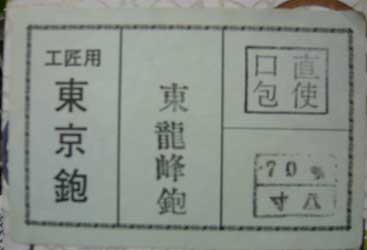 工匠用
東京鉋
東龍峰鉋
直使
口包
70%
寸八